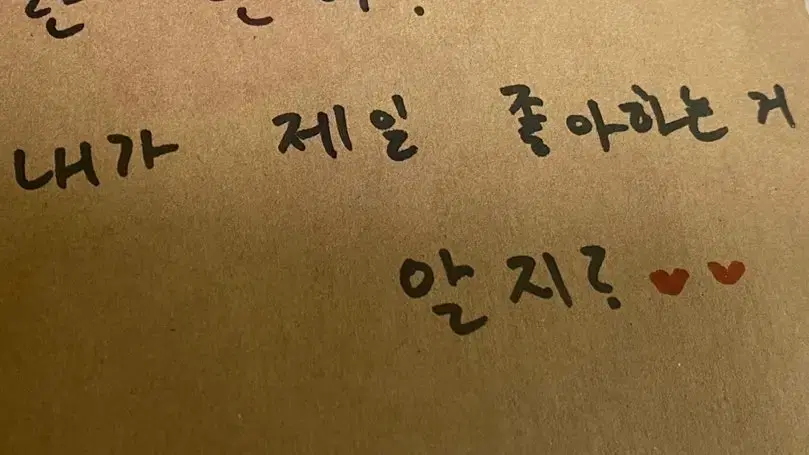 내가 제일 좋아하는 거
알지?♥♥